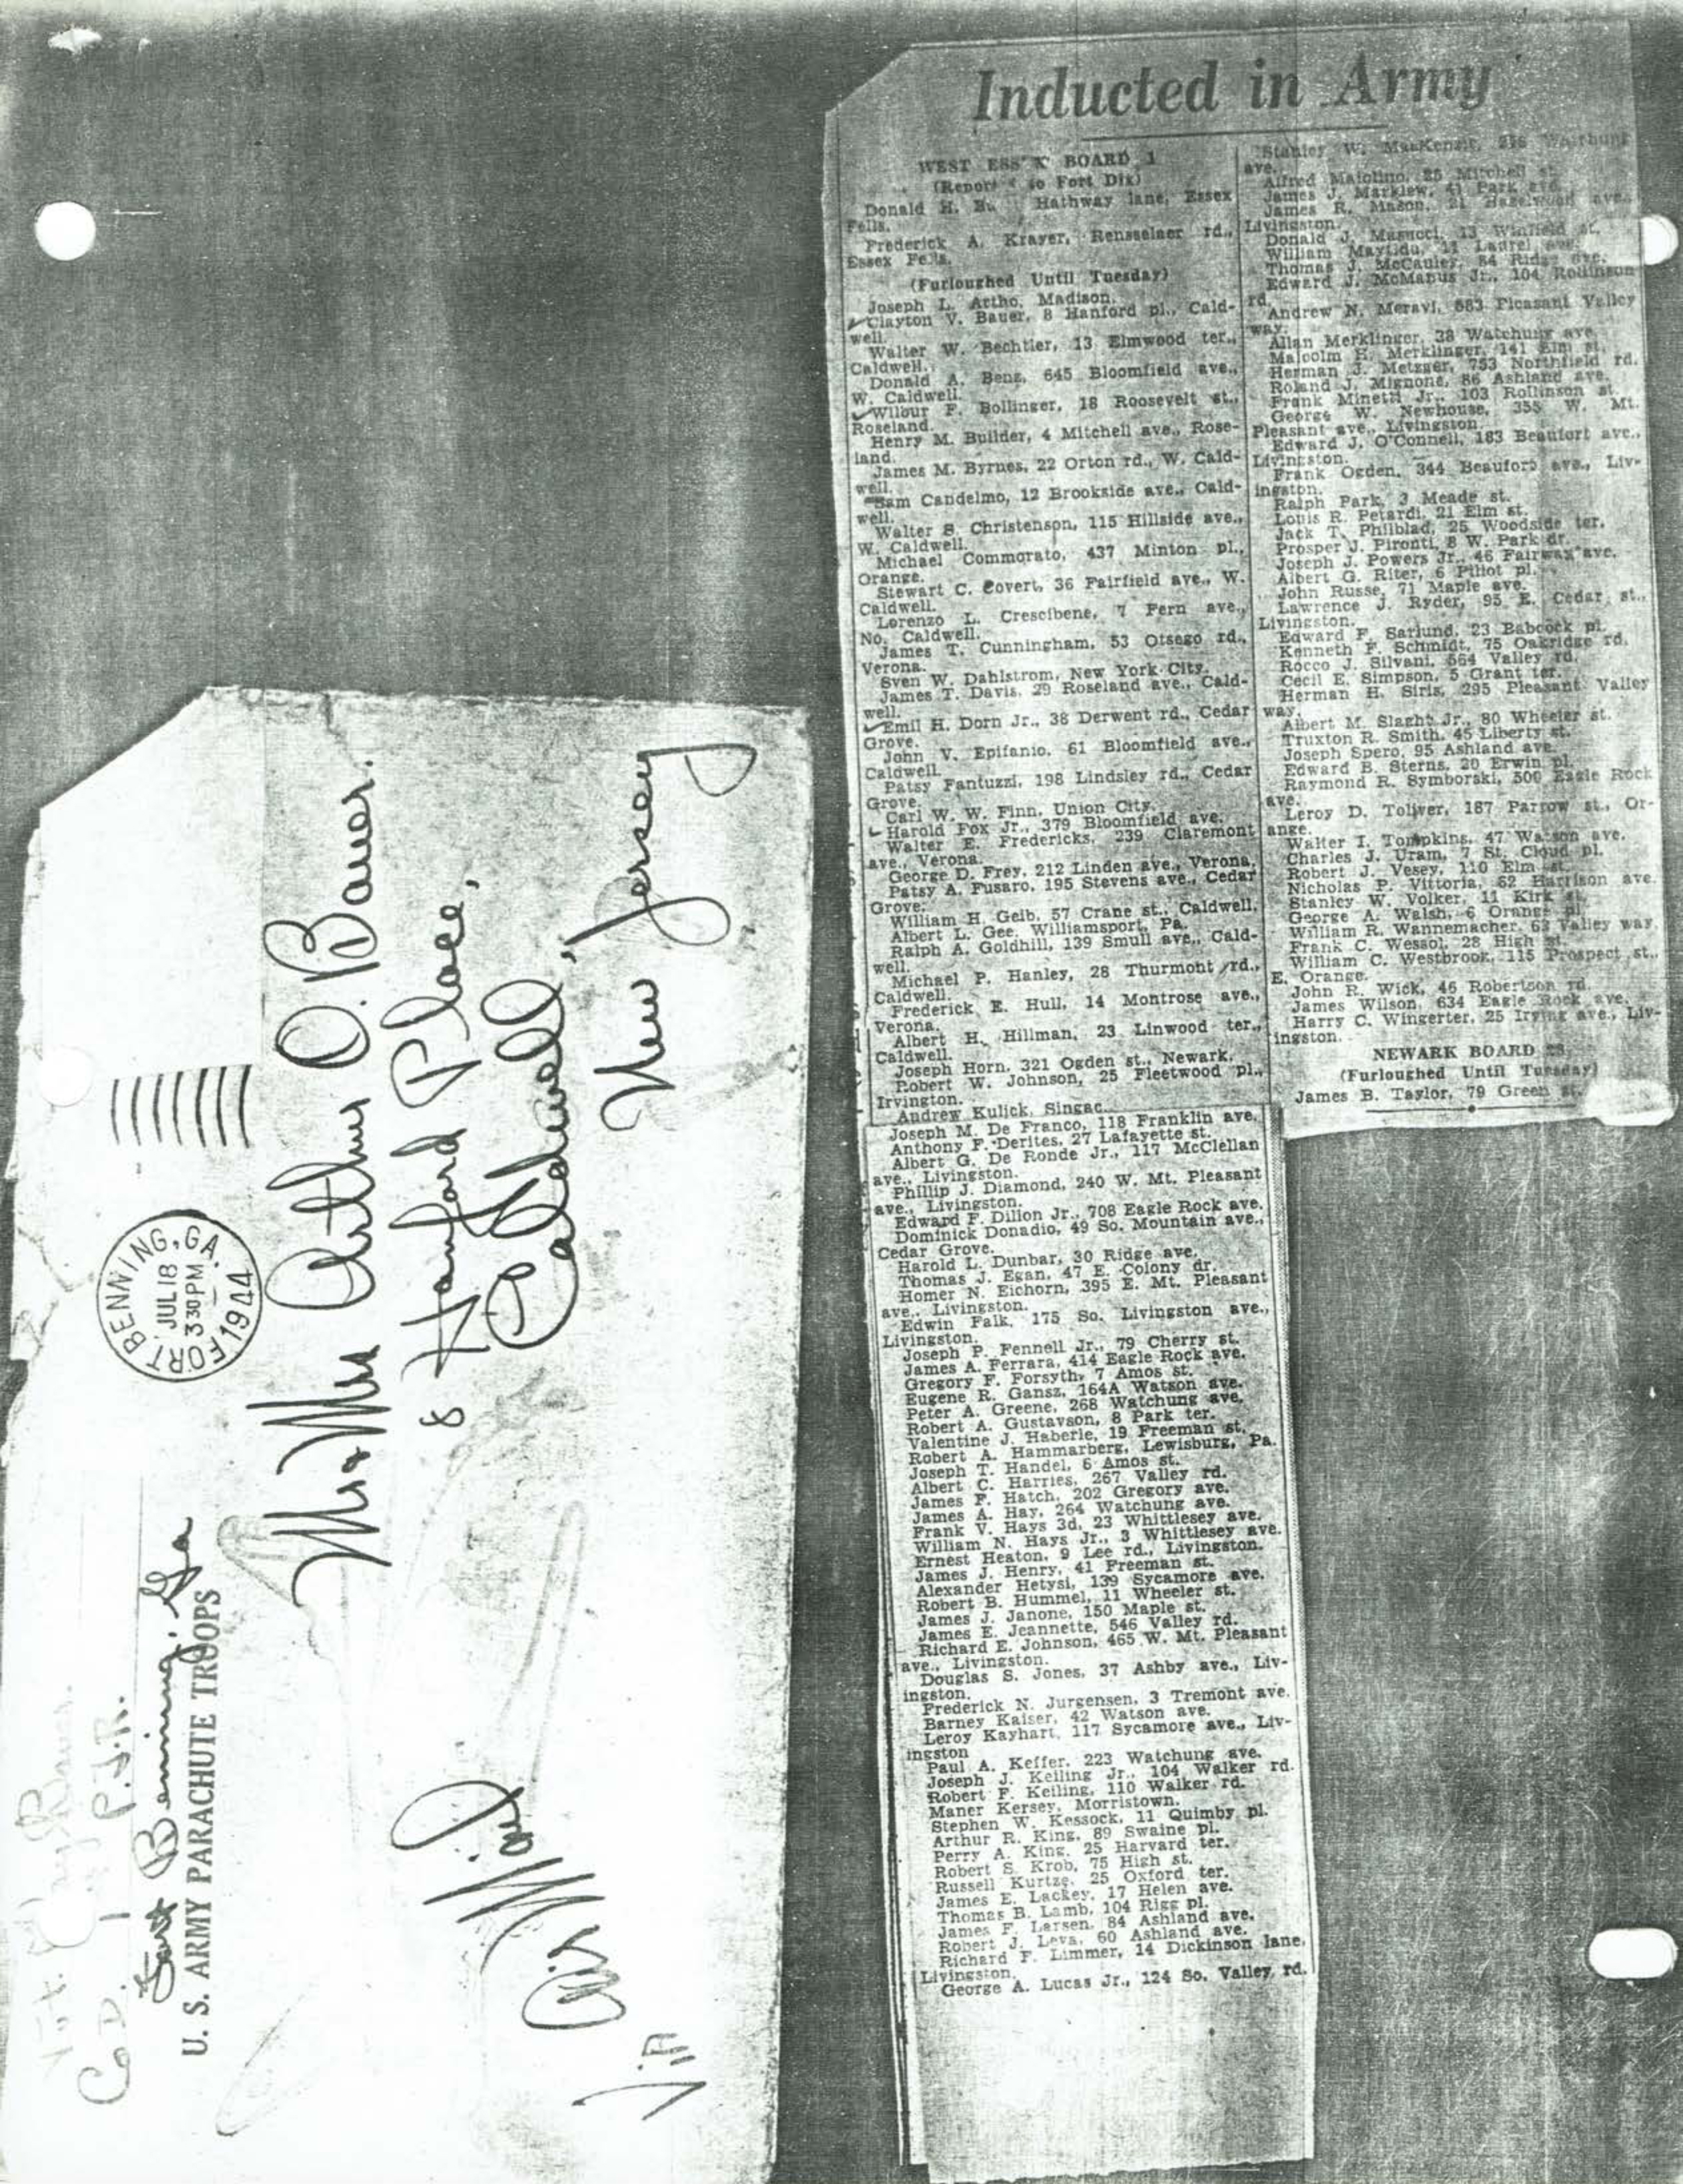 Co. D. 1 P.T.R.
Fort Benning, Ga
U. S. ARMY PARACHUTE TROOPS
FORT BENNING, GA.
JUL 18
3 30 PM
1944
Mr & Mrs Arthur O. Bauer.
8 Hanford Place,
Caldwell,
New Jersey
Air Mail
Inducted in Army
WEST ESS X BOARD 1
(Report to Fort Dix)
Donald H. Hathway lane, Essex
Fells.
Frederick A. Krayer, Rensselaer rd.,
Essex Fells.
(Furloughed Until Tuesday)
Joseph L. Artho, Madison.
Clayton V. Bauer, 8 Hanford pl., Cald-
well.
Walter W. Bechtler, 13 Elmwood ter.,
Caldwell.
Donald A. Benz, 645 Bloomfield ave.,
W. Caldwell.
Wilbur F. Bollinger, 18 Roosevelt st.,
Roseland.
Henry M. Builder, 4 Mitchell ave., Rose-
land.
James M. Byrnes, 22 Orton rd., W. Cald-
well.
Sam Candelmo, 12 Brookside ave., Cald-
well.
Walter S. Christenson, 115 Hillside ave.,
W. Caldwell.
Michael Commorato, 437 Minton pl.,
Orange.
Stewart C. Covert, 36 Fairfield ave., W.
Caldwell.
Lorenzo L. Crescibene, 7 Fern ave.,
No. Caldwell.
James T. Cunningham, 53 Otsego rd.,
Verona.
Sven W. Dahlstrom, New York City.
James T. Davis, 29 Roseland ave., Cald-
well.
Emil H. Dorn Jr., 38 Derwent rd., Cedar
Grove.
John V. Epifanio, 61 Bloomfield ave.,
Caldwell.
Patsy Fantuzzi, 198 Lindsley rd., Cedar
Grove.
Carl W. W. Finn, Union City.
Harold Fox Jr., 379 Bloomfield ave.
Walter E. Fredericks, 239 Claremont
ave., Verona.
George D. Frey, 212 Linden ave., Verona.
Patsy A. Fusaro, 195 Stevens ave., Cedar
Grove.
William H. Geib, 57 Crane st., Caldwell.
Albert L. Gee, Williamsport, Pa.
Ralph A. Goldhill, 139 Smull ave., Cald-
well.
Michael P. Hanley, 28 Thurmont rd.,
Caldwell.
Frederick E. Hull, 14 Montrose ave.,
Verona.
Albert H. Hillman, 23 Linwood ter.,
Caldwell.
Joseph Horn, 321 Ogden st., Newark.
Robert W. Johnson, 25 Fleetwood pl.,
Irvington.
Andrew Kulick, Singac.
Joseph M. De Franco, 118 Franklin ave.
Anthony F. Derites, 27 Lafayette st.
Albert G. De Ronde Jr., 117 McClellan
ave., Livingston.
Phillip J. Diamond, 240 W. Mt. Pleasant
ave., Livingston.
Edward F. Dillon Jr., 708 Eagle Rock ave.
Dominick Donadio, 49 So. Mountain ave.,
Cedar Grove.
Harold L. Dunbar, 30 Ridge ave.
Thomas J. Egan, 47 E. Colony dr.
Homer N. Eichorn, 395 E. Mt. Pleasant
ave., Livingston.
Edwin Falk, 175 So. Livingston ave.,
Livingston.
Joseph P. Fennell Jr., 79 Cherry st.
James A. Ferrara, 414 Eagle Rock ave.
Gregory F. Forsyth, 7 Amos st.
Eugene R. Gansz, 164A Watson ave.
Peter A. Greene, 268 Watchung ave.
Robert A. Gustavson, 8 Park ter.
Valentine J. Haberle, 19 Freeman st.
Robert A. Hammarberg, Lewisburg, Pa.
Joseph T. Handel, 6 Amos st.
Albert C. Harries, 267 Valley rd.
James F. Hatch, 202 Gregory ave.
James A. Hay, 264 Watchung ave.
Frank V. Hays 3d, 23 Whittlesey ave.
William N. Hays Jr., 3 Whittlesey ave.
Ernest Heaton, 9 Lee rd., Livingston.
James J. Henry, 41 Freeman st.
Alexander Hetysi, 139 Sycamore ave.
Robert B. Hummel, 11 Wheeler st.
James J. Janone, 150 Maple st.
James E. Jeannette, 546 Valley rd.
Richard E. Johnson, 465 W. Mt. Pleasant
ave., Livingston.
Douglas S. Jones, 37 Ashby ave., Liv-
ingston.
Frederick N. Jurgensen, 3 Tremont ave.
Barney Kaiser, 42 Watson ave.
Leroy Kayhart, 117 Sycamore ave., Liv-
ingston
Paul A. Keffer, 223 Watchung ave.
Joseph J. Keiling Jr., 104 Walker rd.
Robert F. Keiling, 110 Walker rd.
Maner Kersey, Morristown.
Stephen W. Kessock, 11 Quimby pl.
Arthur R. King, 89 Swaine pl.
Perry A. King, 25 Harvard ter.
Robert S. Krob, 75 High st.
Russell Kurtze, 25 Oxford ter.
James E. Lackey, 17 Helen ave.
Thomas B. Lamb, 104 Rigg pl.
James F. Larsen, 84 Ashland ave.
Robert J. Leva, 60 Ashland ave.
Richard F. Limmer, 14 Dickinson lane,
Livingston.
George A. Lucas Jr., 124 So. Valley rd.
Stanley W. MacKenzie,
ave.
Alfred Maiolino, 25 Mitchell st.
James J. Marklew, 41 Park ave.
James R. Mason, 21 Hazelwood ave.,
Livingston.
Donald J. Masucci, 13 Winfield st.
William Mayfidu, 11 Laurel ave.
Thomas J. McCauley, 84 Ridge ave.
Edward J. McManus Jr., 104 Rollinson
rd.
Andrew N. Meravi, 683 Pleasant Valley
way.
Allan Merklinger, 28 Watchung ave.
Malcolm H. Merklinger, 141 Elm st.
Herman J. Metzger, 753 Northfield rd.
Roland J. Mignone, 86 Ashland ave.
Frank Minetti Jr., 103 Rollinson st.
George W. Newhouse, 355 W. Mt.
Pleasant ave., Livingston.
Edward J. O'Connell, 183 Beaufort ave.,
Livingston.
Frank Ogden, 344 Beaufort ave., Liv-
ingston.
Ralph Park, 3 Meade st.
Louis R. Petardi, 21 Elm st.
Jack T. Philblad, 25 Woodside ter.
Prosper J. Pironti, 8 W. Park dr.
Joseph J. Powers Jr., 46 Fairway ave.
Albert G. Riter, 6 Pillot pl.
John Russe, 71 Maple ave.
Lawrence J. Ryder, 95 E. Cedar st.,
Livingston.
Edward F. Sarlund, 23 Babcock pl.
Kenneth F. Schmidt, 75 Oakridge rd.
Rocco J. Silvani, 564 Valley rd.
Cecil E. Simpson, 5 Grant ter.
Herman H. Siris, 295 Pleasant Valley
way.
Albert M. Slaght Jr., 80 Wheeler st.
Truxton R. Smith, 45 Liberty st.
Joseph Spero, 95 Ashland ave.
Edward B. Sterns, 20 Erwin pl.
Raymond R. Symborski, 500 Eagle Rock
ave.
Leroy D. Toliver, 187 Parrow st., Or-
ange.
Walter I. Tompkins, 47 Watson ave.
Charles J. Uram, 7 St. Cloud pl.
Robert J. Vesey, 110 Elm st.
Nicholas P. Vittoria, 62 Harrison ave.
Stanley W. Volker, 11 Kirk st.
George A. Walsh, 6 Orange pl.
William R. Wannemacher, 63 Valley way.
Frank C. Wessol, 28 High st.
William C. Westbrook, 115 Prospect st.,
E. Orange.
John R. Wick, 46 Robertson rd.
James Wilson, 634 Eagle Rock ave.
Harry C. Wingerter, 25 Irving ave., Liv-
ingston.
NEWARK BOARD
(Furloughed Until Tuesday)
James B. Taylor, 79 Green st.